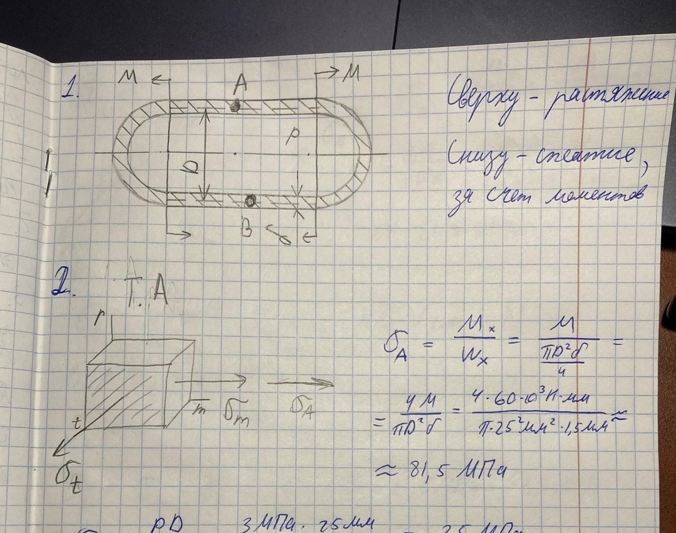 1.
M
A
M
D
p
B
δ
Сверху - растяжение
Снизу - сжатие,
за счет моментов
2.
Т. A
r
t
m
σt
σm
σA
σA = Mx / Wx = M / (πD²δ / 4) =
= 4M / πD²δ = 4·60·10³Н·мм / π·25²мм²·1,5мм ≈
≈ 81,5 МПа
pD 3 МПа · 25мм = 25 МПа